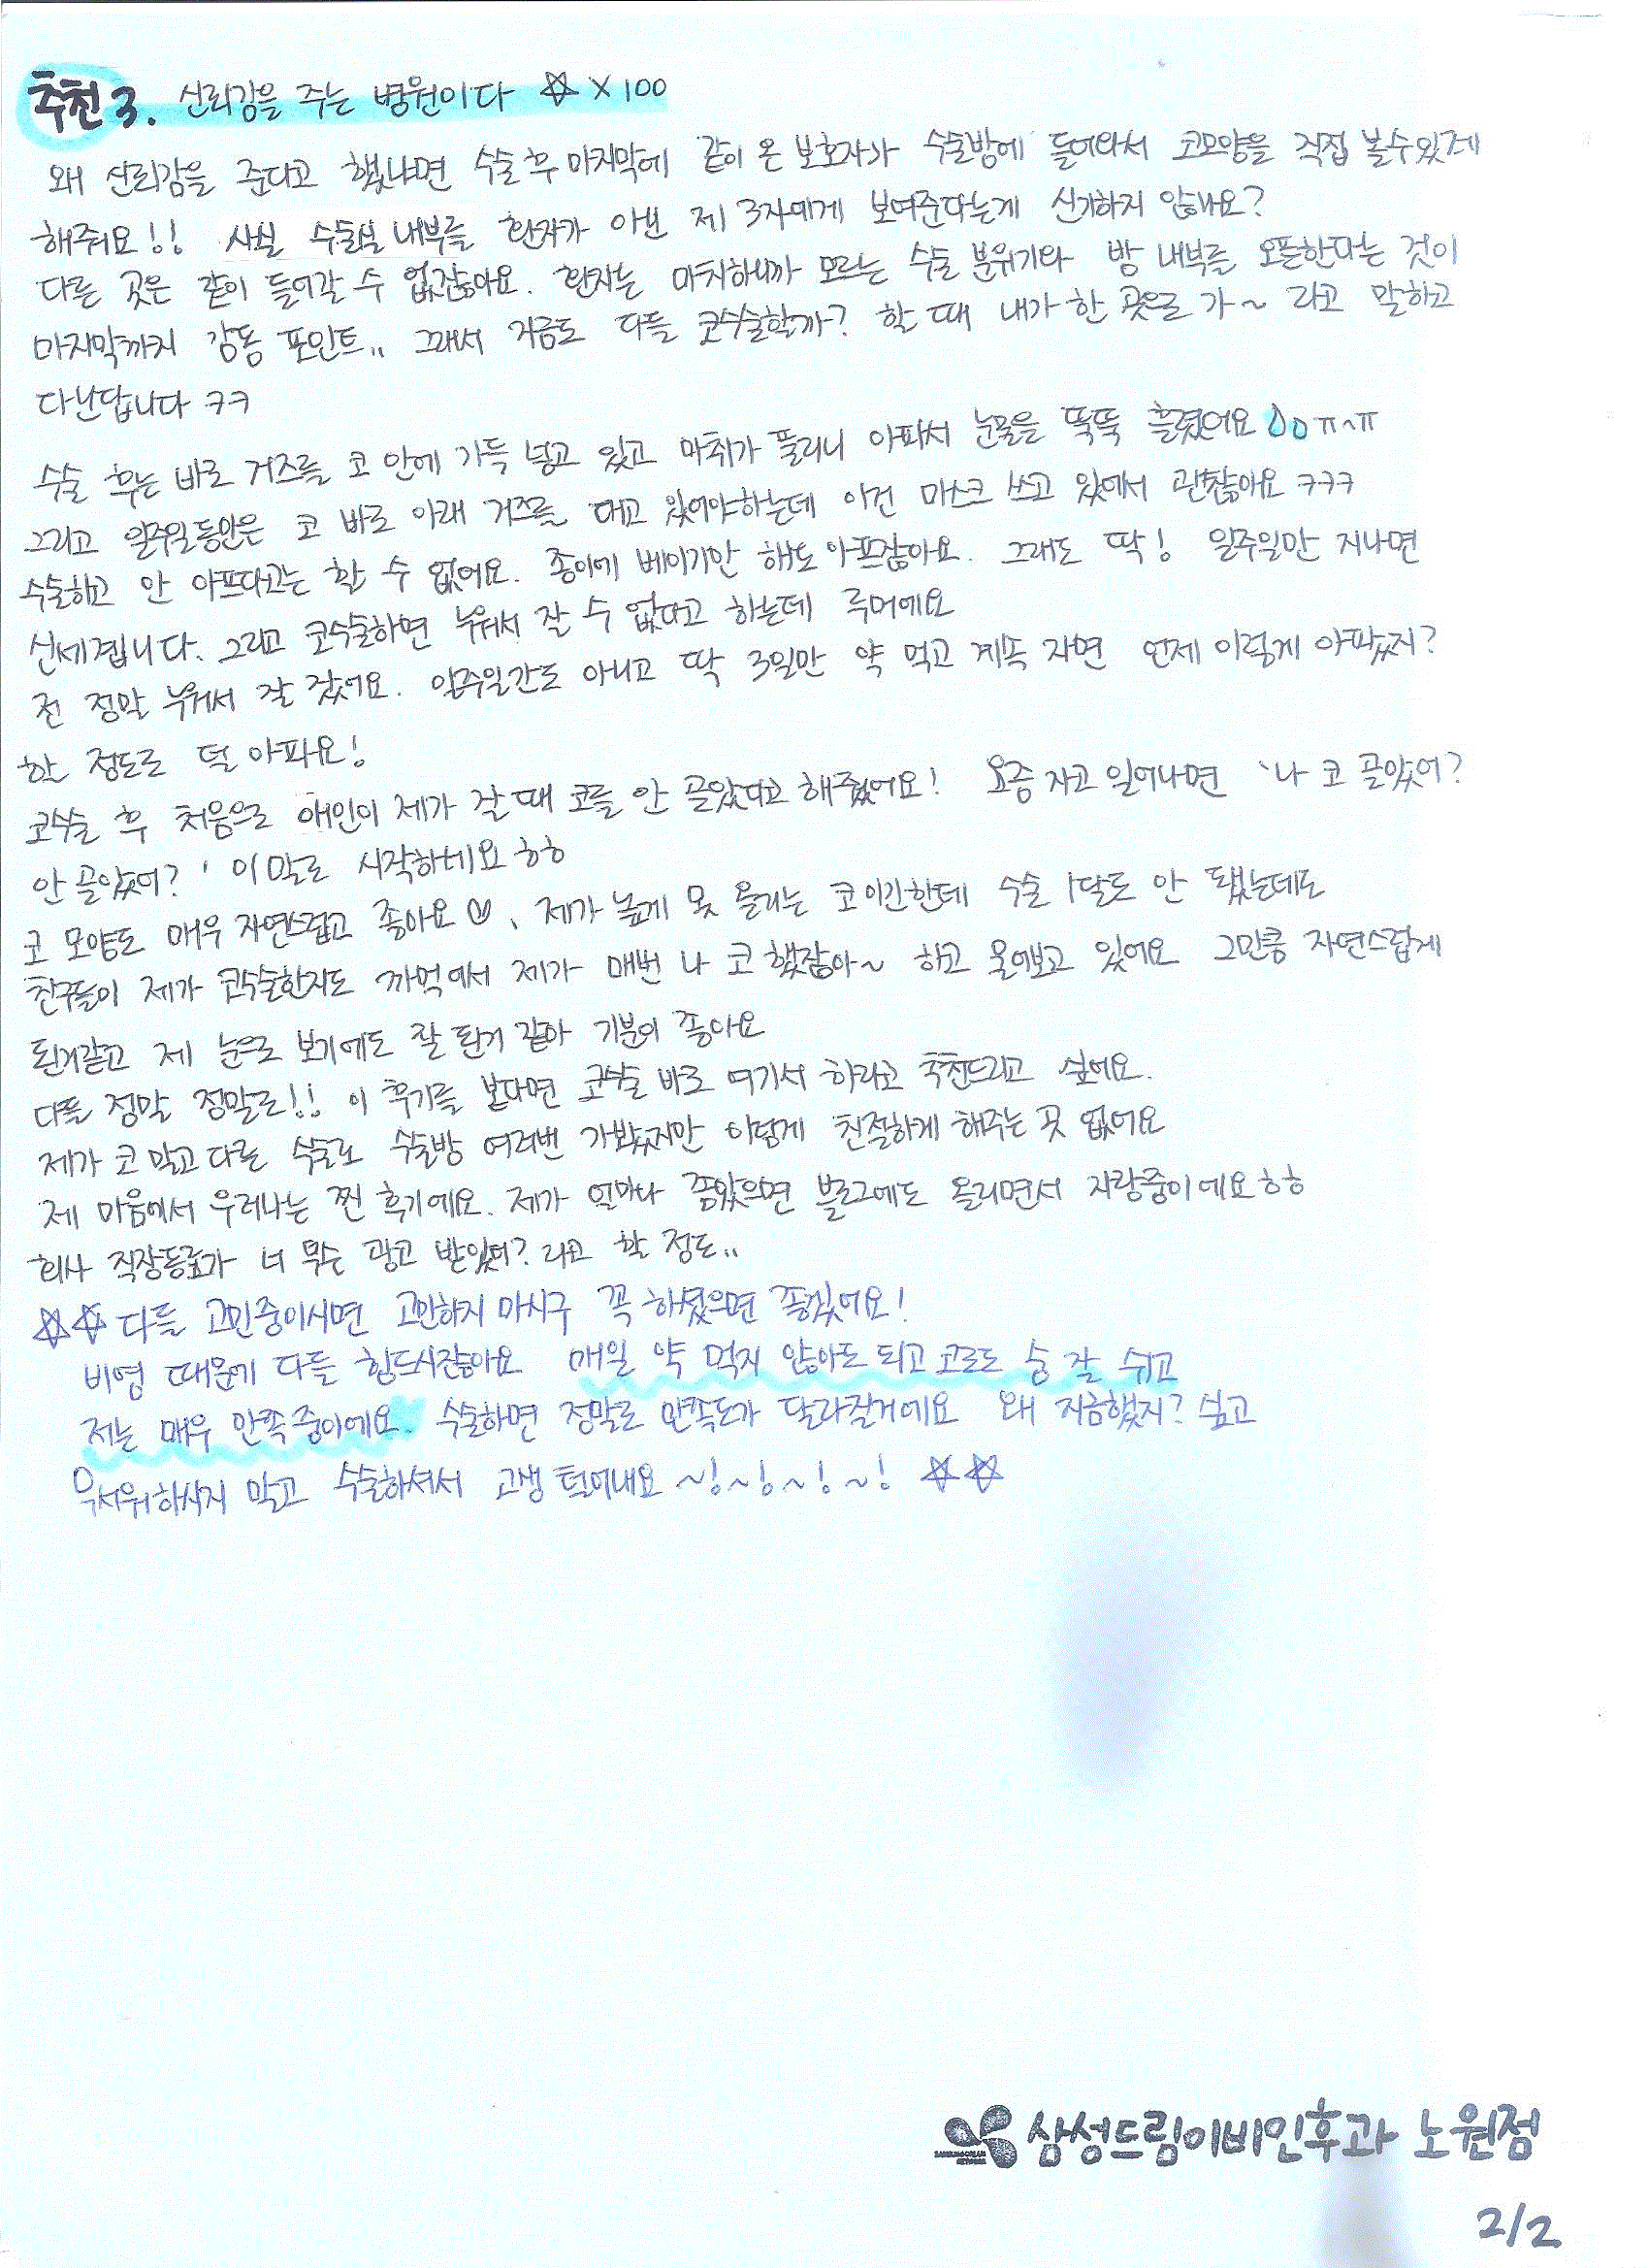 추천 3. 신뢰감을 주는 병원이다 ☆ X 100
왜 신뢰감을 준다고 했냐면 수술 후 마지막에 같이 온 보호자가 수술방에 들어와서 코모양을 직접 볼수있게
해줘요!! 사실 수술실 내부를 환자가 아닌 제 3자에게 보여준다는게 신기하지 않나요?
다른 곳은 같이 들어갈 수 없잖아요. 환자는 마취하니까 모르는 수술 분위기와 방 내부를 오픈한다는 것이
마지막까지 감동 포인트.. 그래서 지금도 다들 코수술할까? 할 때 내가 한 곳으로 가~ 라고 말하고
다닌답니다 ㅋㅋ
수술 후는 바로 거즈를 코 안에 가득 넣고 있고 마취가 풀리니 아파서 눈물을 뚝뚝 흘렸어요 ㅠ^ㅠ
그리고 일주일동안은 코 바로 아래 거즈를 대고 있어야하는데 이건 마스크 쓰고 있에서 괜찮아요 ㅋㅋㅋ
수술하고 안 아프다고는 할 수 없어요. 종이에 베이기만 해도 아프잖아요. 그래도 딱! 일주일만 지나면
신세계입니다. 그리고 코수술하면 누워서 잘 수 없다고 하는데 루머에요
전 정말 누워서 잘 잤어요. 일주일간도 아니고 딱 3일만 약 먹고 계속 자면 언제 이렇게 아팠지?
한 정도로 덜 아파요!
코수술 후 처음으로 애인이 제가 잘 때 코를 안 골았다고 해줬어요! 요즘 자고 일어나면 '나 코 골았어?
안 골았어?' 이 말로 시작하네요 ㅎㅎ
코 모양도 매우 자연스럽고 좋아요☺. 제가 높게 못 올리는 코이긴한데 수술 1달도 안 됐는데도
친구들이 제가 코수술한지도 까먹에서 제가 매번 나 코 했잖아~ 하고 물어보고 있어요 그만큼 자연스럽게
된거같고 제 눈으로 보기에도 잘 된거 같아 기분이 좋아요
다들 정말 정말로!! 이 후기를 본다면 코수술 바로 여기서 하라고 추천드리고 싶에요.
제가 코 말고 다른 수술로 수술방 여러번 가봤지만 이렇게 친절하게 해주는 곳 없어요
제 마음에서 우러나는 찐 후기에요. 제가 얼마나 좋았으면 블로그에도 올리면서 자랑중이에요ㅎㅎ
회사 직장동료가 너 무슨 광고 받았어? 라고 할 정도..
☆☆ 다들 고민중이시면 고민하지 마시구 꼭 하셨으면 좋겠어요!
비염 때문에 다들 힘드시잖아요 매일 약 먹지 않아도 되고 코로도 숨 잘 쉬고
저는 매우 만족중이에요. 수술하면 정말로 만족도가 달라질거에요 왜 지금했지? 싶고
무서워하시지 말고 수술하셔서 고생 털어내요 ~!~!~!~! ☆☆
삼성드림이비인후과 노원점
2/2